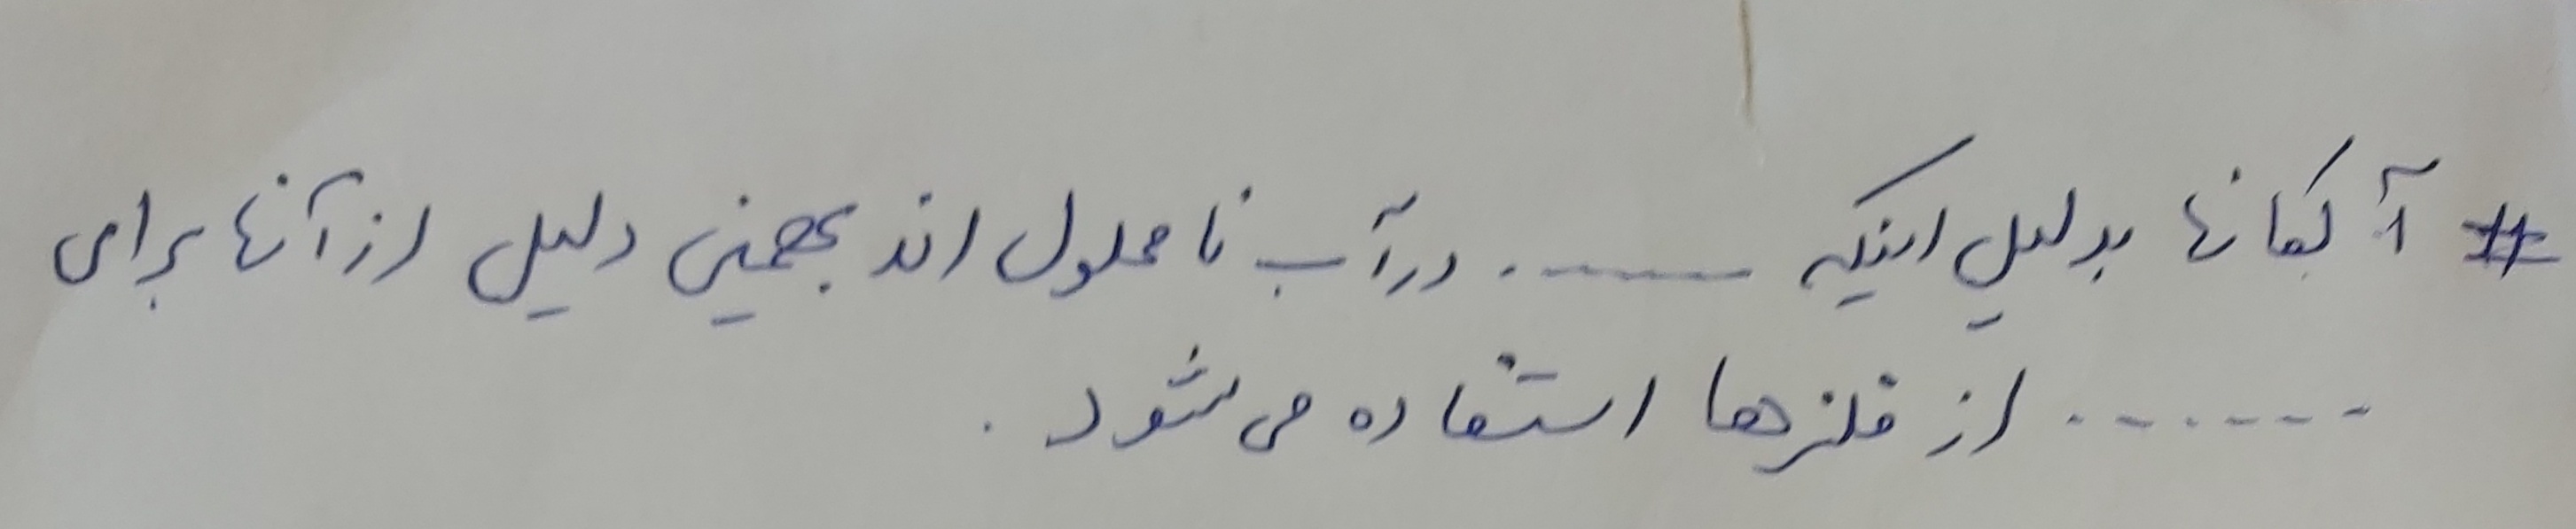 # آلکانها بدلیل اینکه ........ در آب نامحلول اند بهمین دلیل از آنها برای
........ از فلزها استفاده می شود .